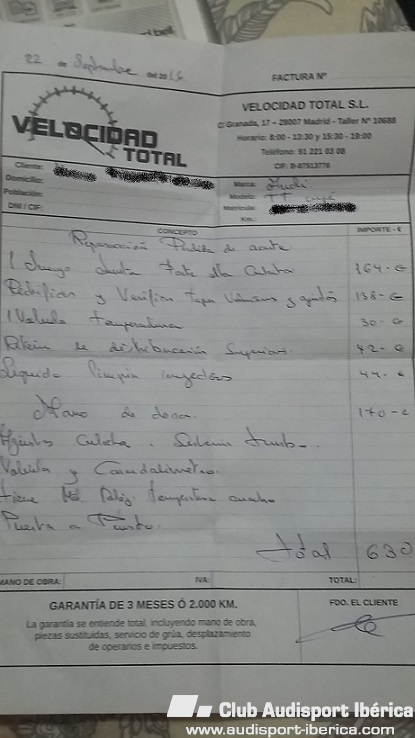 22 de Septiembre del 2016
FACTURA Nº
VELOCIDAD
TOTAL
VELOCIDAD TOTAL S.L.
C/ Granada, 17 – 28007 Madrid - Taller Nº 10688
Horario: 8:00 - 13:30 y 15:30 - 19:00
Teléfono: 91 221 03 08
CIF: B-87513776
Cliente:
Domicilio:
Población:
DNI / CIF:
Marca: Audi
Modelo: TT
Matrícula:
Km.:
CONCEPTO IMPORTE - €
Reparación Perdida de aceite
1 Juego Junta Tapa culata 164 - €
Rectificar y Verificar tapa 138 - €
1 Valvula temperatura 30 - €
de distribución Superior 42 - €
Liquido limpia inyectores 44 - €
Mano de obra. 170 - €
culata.
y Caudalimetro.
tiene temperatura
Puesta a Punto.
total 630
MANO DE OBRA: IVA: TOTAL:
GARANTÍA DE 3 MESES Ó 2.000 KM.
La garantía se entiende total, incluyendo mano de obra,
piezas sustituidas, servicio de grúa, desplazamiento
de operarios e impuestos.
FDO. EL CLIENTE
Club Audisport Ibérica
www.audisport-iberica.com